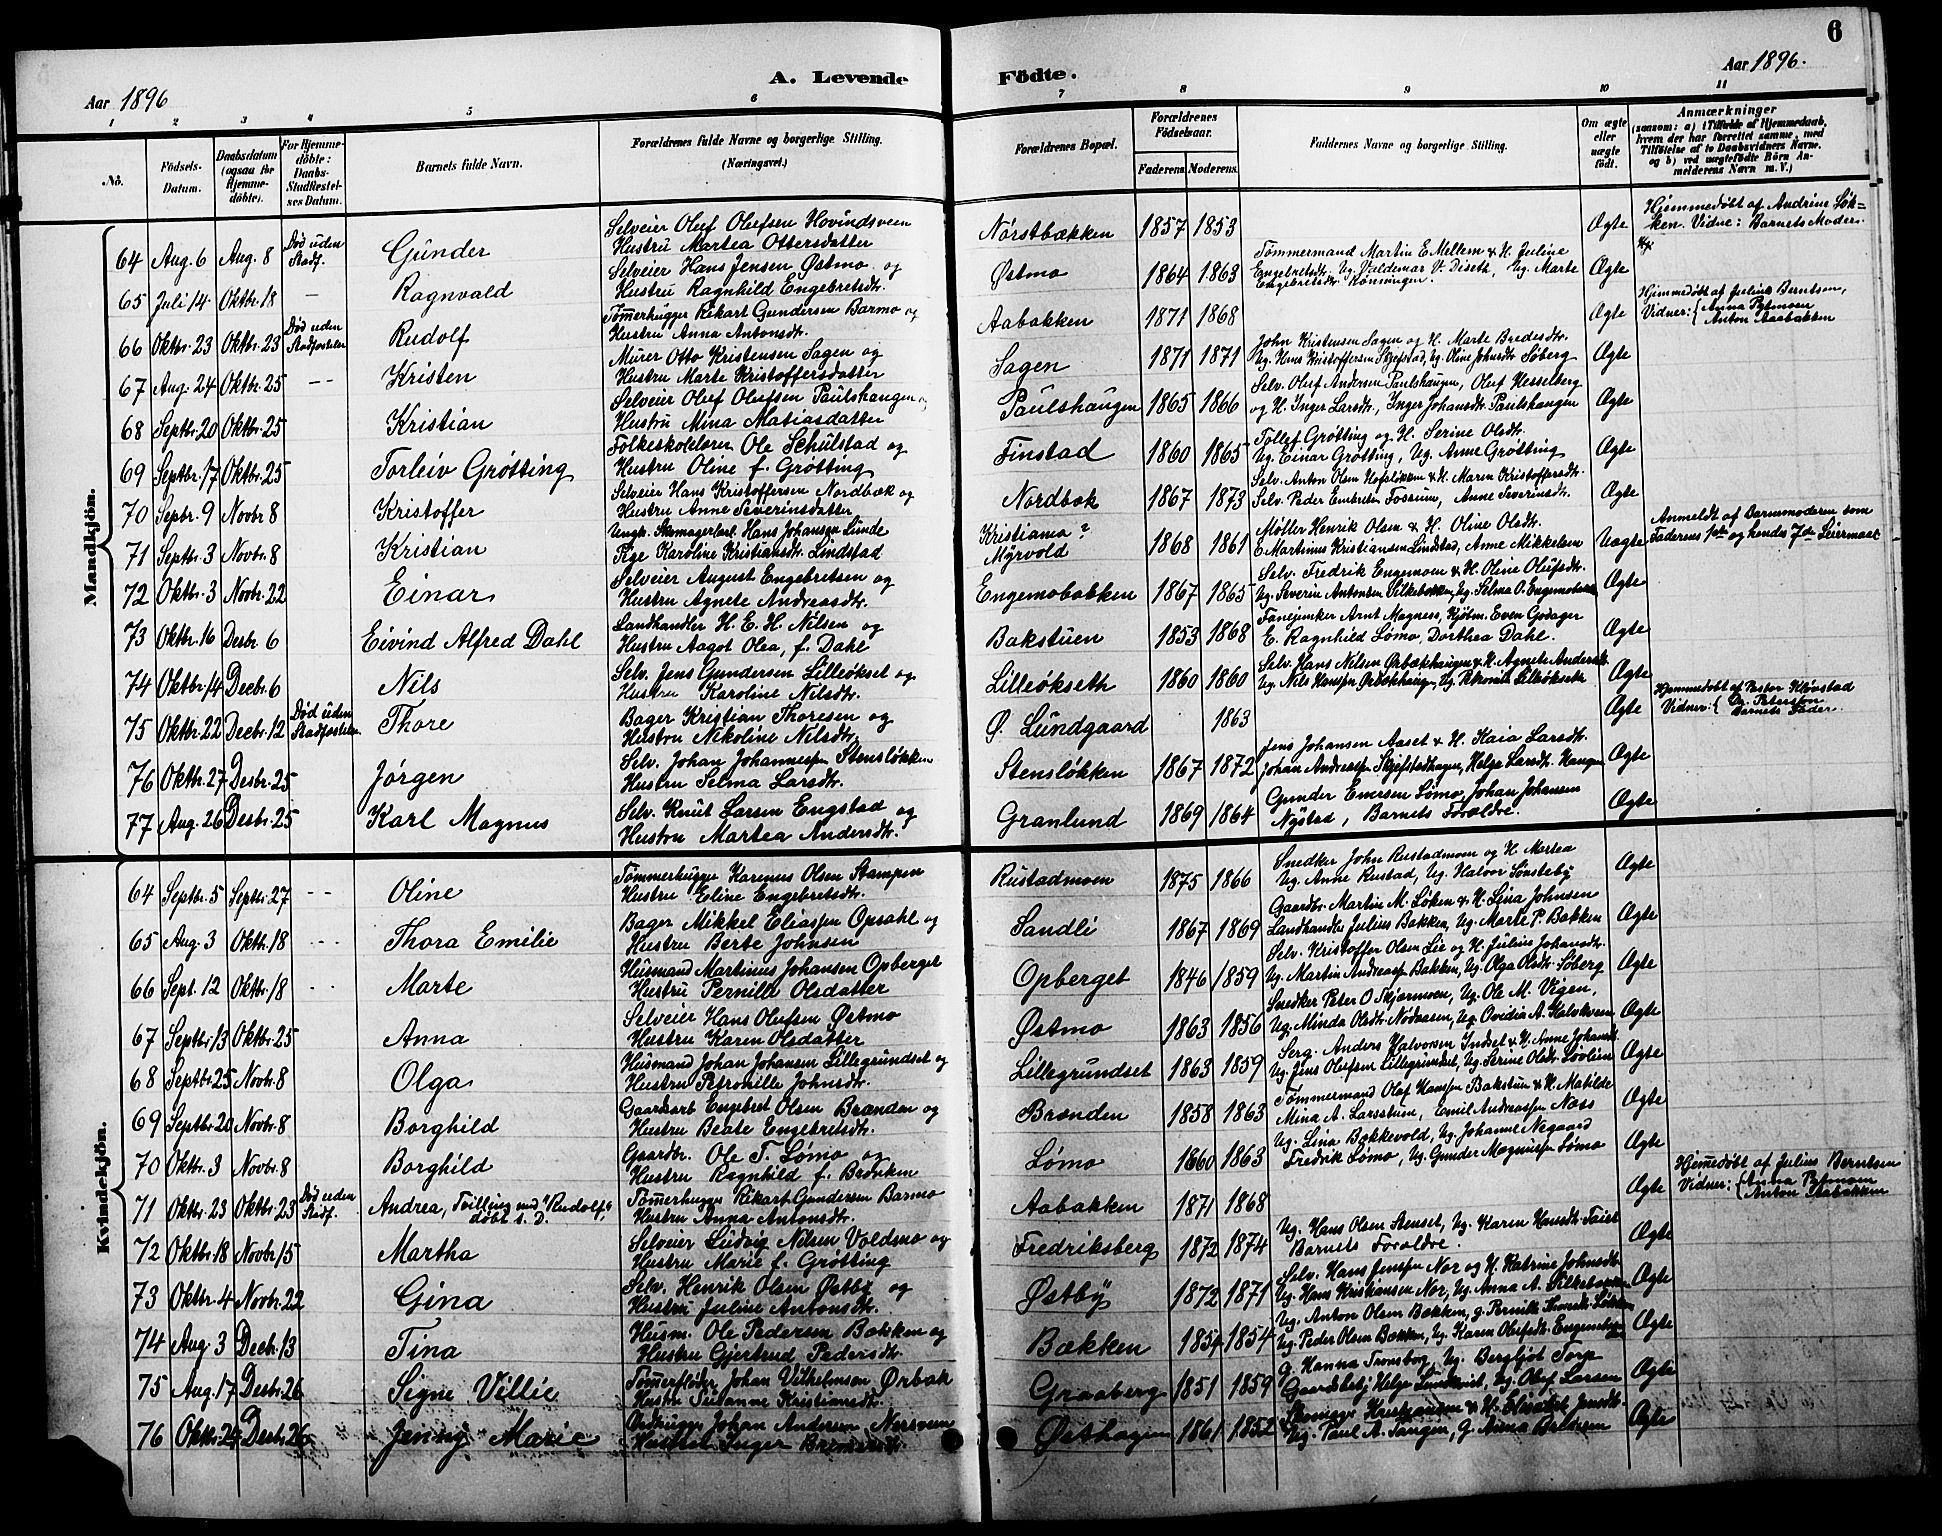 6
A. Levende Födte.
Aar 1896
Aar 1896.
1 2 3 4 5 6 7 8 9 10 11
No.
Födsels-Datum.
Daabsdatum (ogsaa for Hjemme-döbte).
For Hjemme-döbte: Daabs-Stadfæstel-ses Datum.
Barnets fulde Navn.
Forældrenes fulde Navne og borgerlige Stilling. (Næringsvei.)
Forældrenes Bopæl.
Forældrenes Födselsaar.
Faderens Moderens.
Faddernes Navne og borgerlige Stilling.
Om ægte eller uægte födt.
Anmærkninger
(saasom: a) i Tilfælde af Hjemmedaab, hvem der har forrettet samme, med Tilföielse af to Daabsvidners Navne. og b) ved uægtefödte Börn An-melderens Navn m. V.)
Mandkjön.
64 Aug. 6 Aug. 8 Död uden Stadf. Gunder
Selveier Oluf Olufsen Hovindsveen
Hustru Martea Ottersdatter
Nörstbækken 1857 1853 Ægte
Hjemmedöbt af Andrine Løk-
ken. Vidne: Barnets Moder.
65 Juli 14 Oktbr. 18 — Ragnvald
Selveier Hans Jensen Østmo og
Hustru Ragnhild Engebretsdtr.
Østmo 1864 1863
Tømmermand Martin E. Mellem & H. Juline
Engebretsdtr. Ug. Valdemar V. Diseth, Ug. Marte
Engebretsdtr. Ægte
66 Oktbr. 23 Oktbr. 23 Död uden Stadfæstelse Rudolf
Tømerhugger Rikart Gundersen Barmo og
Hustru Anna Antonsdtr.
Aabakken 1871 1868 Ægte
Hjemmedöbt af Julius Berntsen,
Vidner: Anna
Anton Aabakken
67 Aug. 24 Oktbr. 25 — Kristen
Murer Otto Kristensen Sagen og
Hustru Marte Kristoffersdatter
Sagen 1871 1871
John Kristensen Sagen og H. Marte Bredesdtr.
Ug. Hans Kristoffersen Skjefstad, Ug. Oline Johnsdtr. Söberg Ægte
68 Septbr. 20 Oktbr. 25 Kristian
Selveier Oluf Olufsen Paulshaugen og
Hustru Mina Matiasdatter
Paulshaugen 1865 1866
Selv. Oluf Andersen Paulshaugen, Oluf Hesselberg
og H. Inger Larsdtr., Inger Johansdtr. Paulshaugen Ægte
69 Septbr. 17 Oktbr. 25 Torleiv Gröttting
Folkeskolelærer Ole Schulstad og
Hustru Oline f. Grötting
Finstad 1860 1865
Tollef Grötting og H. Serine Olsdtr.
Ug. Einar Grötting, Ug. Anne Grötting Ægte
70 Septbr. 9 Novbr 8 Kristoffer
Selveier Hans Kristoffersen Nordbæk og
Hustru Anne Severinsdatter
Nordbæk 1867 1873
Selv. Anton Olsen Hofslökken & H. Maren Kristoffersdtr.
Selv. Peder Embretsen Fossum, Anne Severinsdtr. Ægte
71 Septbr. 3 Novbr. 8 Kristian
Ungk. Skomagerlærl. Hans Johansen Lunde
Pige Karoline Kristiansdtr. Lindstad
Kristiania?
Myrvold 1868 1861
Møller Henrik Olsen & H. Oline Olsdtr.
E. Martinus Kristiansen Lindstad, Anne Mikkelsen Uægte
Anmeldt af Barnmoderen som
Faderens 1ste og hendes 7de Leiermaal
72 Oktbr. 3 Novbr. 22 Einar
Selveier August Engebretsen og
Hustru Agnete Andreasdtr.
Engemobakken 1867 1865
Selv. Fredrik Engemoen & H. Oline Olufsdtr.
Ug. Severin Antonsen Silkebækken, Ug. Selma O. Engemobakken Ægte
73 Oktbr. 16 Desbr. 6 Eivind Alfred Dahl
Landhandler H. E. H. Nilsen og
Hustru Aagot Olea, f. Dahl
Bakstuen 1853 1868
Fanejunker Arnt Magness, Kjøbm. Even Godager
E. Ragnhild Lømo, Dorthea Dahl. Ægte
74 Oktbr. 14 Decbr. 6 Nils
Selv. Jens Gundersen Lilleökset og
Hustru Karoline Nilsdtr.
Lilleökseth 1860 1860
Selv. Hans Nilsen Ørbækhaugen & H. Agnete Andersdtr.
Ug. Nils Hansen Ørbækhaugen, Ug. Petronille Lilleökseth Ægte
75 Oktbr. 22 Decbr. 12 Död uden Stadfæstelse Thore
Bager Kristian Thoresen og
Hustru Nikoline Nilsdtr.
Ø. Lundgaard 1863 Ægte
Hjemmedöbt af Pastor Klövstad
Vidner: Dr. Petersen
Barnets Fader.
76 Oktbr. 27 Desbr. 25 Jörgen
Selv. Johan Johannessen Stenslökken
Hustru Selma Larsdtr.
Stenslökken 1867 1872
Jens Johansen Aaset & H. Kaia Larsdtr.
Johan Andreassen Skjefstadhagen, Helga Larsdtr. Haugen Ægte
77 Aug. 26 Desbr. 25 Karl Magnus
Selv. Knut Larsen Engstad og
Hustru Martea Andersdtr.
Granlund 1869 1864
Gunder Enersen Lømo, Johan Johansen
Nystad, Barnets Forældre. Ægte
Kvindekjön.
64 Septbr. 5 Septbr. 27 — Oline
Tømmerhugger Karenus Olsen Stampen
Hustru Eline Engebretsdtr.
Rustadmoen 1875 1866
Snedker John Rustadmoen og H. Martea
Ug. Anne Rustad, Ug. Halvor Sönsteby Ægte
65 Aug. 3 Oktbr. 18 — Thora Emilie
Bager Mikkel Eliassen Opsahl og
Hustru Berte Johnsen
Sandli 1867 1869
Gaardbr. Martin M. Løken & H. Lina Johnsen
Landhandler Julius Bakken, Ug. Marte P. Bakken Ægte
66 Sept. 12 Oktbr. 18 — Marte
Husmand Martinus Johansen Opberget
Hustru Pernille Olsdatter
Opberget 1846 1859
Selv. Kristoffer Olsen Lie og H. Julius Johansdtr.
Ug. Martin Andreassen Bakken, Ug. Olga Olsdtr. Söberg Ægte
67 Septbr. 13 Oktbr. 25 Anna
Selveier Hans Olufsen Østmo
Hustru Karen Olsdatter
Østmo 1863 1856
Snedker Peter O. Skjærmoen, Ug. Ole M. Vigen,
Ug. Minda Olsdtr. Nordaasen, Ug. Ovidia A. Kalvkveen Ægte
68 Septbr. 25 Novbr. 8 Olga
Husmand Johan Johansen Lillegrundset og
Hustru Petronille Johnsdtr.
Lillegrundset 1863 1859
Serg. Anders Halvorsen Indset & H. Anne Johansdtr.
Ug. Jens Olufsen Lillegrundset, Ug. Serine Olsdtr. Lovlien Ægte
69 Septbr. 20 Novbr. 8 Borghild
Gaardarb. Engebret Olsen Brænden og
Hustru Beate Engebretsdtr.
Brænden 1858 1863
Tømmermand Olaf Hanssen Bakstun & H. Matilde
Mina A. Larsstuen, Emil Andreassen Næss Ægte
70 Oktbr. 3 Novbr. 8 Borghild
Gaardbr. Ole T. Lømo og
Hustru Ragnhild f. Brenken
Lømo 1860 1863
Ug. Lina Bekkevold, Ug. Johanne Negaard
Fredrik Lømo, Ug. Gunder Magnussen Lømo Ægte
71 Oktbr. 23 Oktbr. 23 Död uden Stadf. Andrea, Tvilling med "Rudolf"
döbt s. D.
Tømerhugger Rikart Gundersen Barmo
Hustru Anna Antonsdtr.
Aabakken 1871 1868 Ægte
Hjemmedöbt af Julius Berntsen
Vidner: Anna
Anton Aabakken
72 Oktbr. 18 Novbr. 15 Martha
Selveier Ludvig Nilsen Voldmo og
Hustru Marie f. Grötting
Fredriksberg 1872 1874
Ug. Hans Olsen Stenset, Ug. Karen Hansdtr. Taiet
Barnets Forældre. Ægte
73 Oktbr. 4 Novbr. 22 Gina
Selv. Henrik Olsen Østby og
Hustru Juline Antonsdtr.
Østby 1872 1871
Selv. Hans Jenssen Nor og H. Katrine Johnsdtr.
Ug. Hans Kristiansen Nor, Ug. Anna A. Silkebækken Ægte
74 Aug. 3 Decbr. 13 Tina
Husm. Ole Pedersen Bækken og
Hustru Gjertrud Pedersdtr.
Bækken 1854 1854
Ug. Anton Olsen Bækken, g. Pernille
Ug. Peder Olsen Bækken, Ug. Karen Olufsdtr. Engemobakken Ægte
75 Aug. 17 Desbr. 26 Signe Villie
Tømerfløder Johan Vilhelmsen Ørbæk
Hustru Susanne Kristiansdtr.
Graaberg 1851 1859
g. Hanna Tronsborg, Ug. Bergljot Torp
Gaardsbest. Helge Sundkvist, Ug. Olef Larsen Ægte
76 Oktbr. 24 Desbr. 26 Jenny Marie
Johan Andersen Nersveen
Hustru Inger
Østhagen 1861 1852
Kristiansen & H. Elisabet Jensdtr.
Ug. Paul A. Tangen, g. Anna Ægte